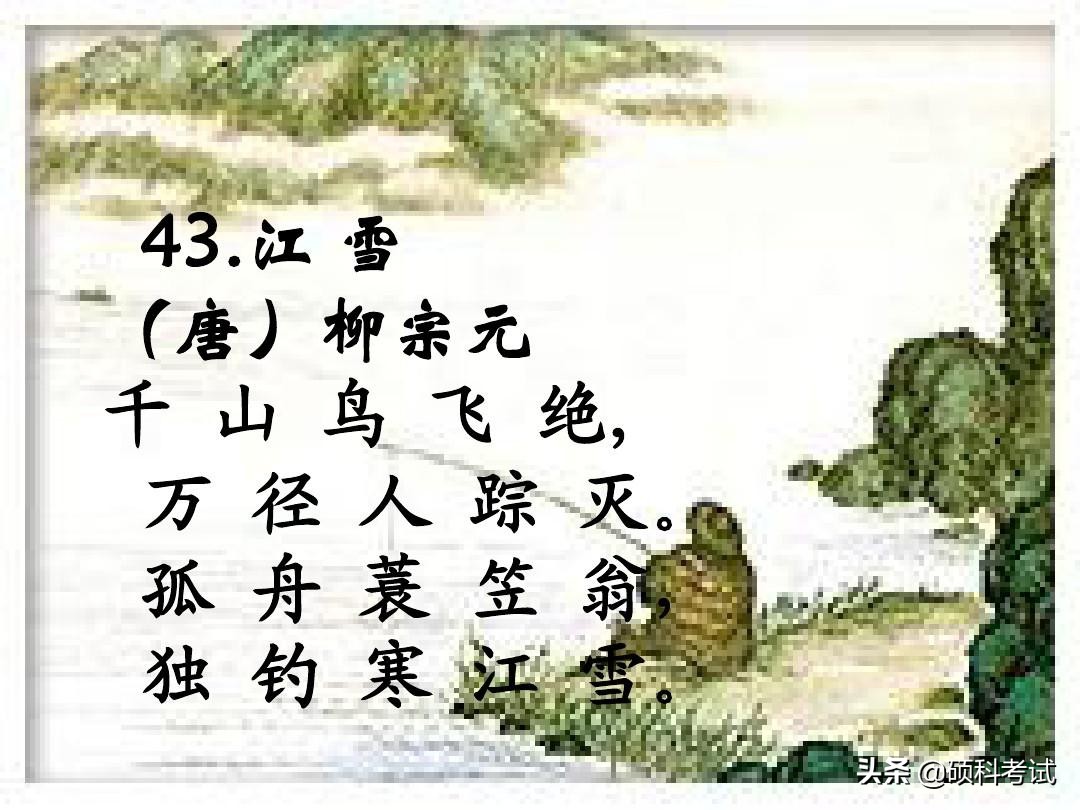 43.江 雪
（唐）柳宗元
千 山 鸟 飞 绝,
万 径 人 踪 灭。
孤 舟 蓑 笠 翁,
独 钓 寒 江 雪。
头条 @硕科考试